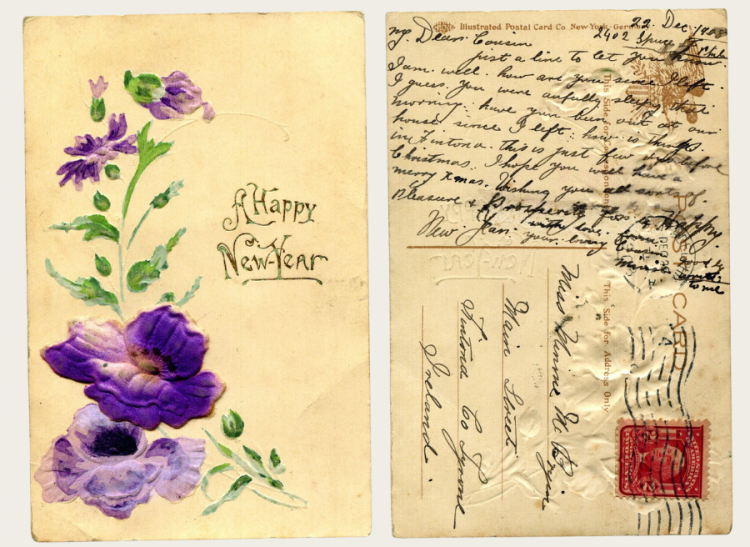 A Happy
New Year
Illustrated Postal Card Co New York-Germany
22 Dec. 1908
2402 Spruce St
Phila
My Dear Cousin
just a line to let you know
I am well. how are you since I left.
I guess you were awfully sleepy that
morning. have you been out at our
house since I left. how is things
in Fintona. this is just few days before
Christmas. I hope you will have a
merry Xmas. Wishing you all sorts of
Pleasure & Prosperity
Happy
New Year. your loving Cousin
with love from
good by
write
to me
This Side for
POST CARD
This Side for Address Only
Miss Minnie M.
Main Street
Fintona Co Tyrone
Ireland.